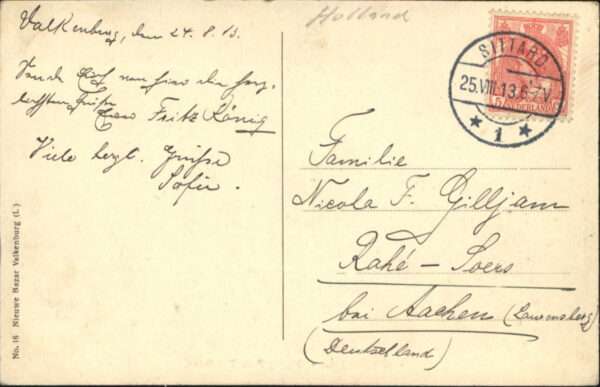 Valkenburg, den 24.8.13.
von hier die herz-
lichsten Grüße
Euer Fritz König
Viele herzl. Grüße
Sofie.
No. 16 Nieuwe Bazar Valkenburg (L.)
Holland
SITTARD
25.VIII.13.6-7V
1
5
NEDERLAND
Familie
Nicola F. Gilljam
Rahé - Soers
bei Aachen (Laurensberg)
(Deutschland)